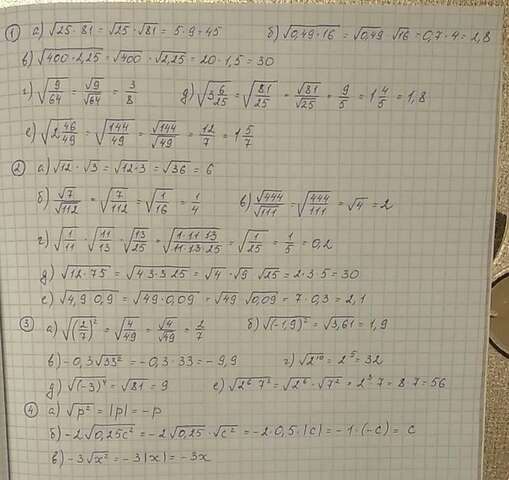 ① а) √25·81 = √25·√81 = 5·9 = 45 б) √0,49·16 = √0,49·√16 = 0,7·4 = 2,8
в) √400·2,25 = √400·√2,25 = 20·1,5 = 30
г) √9/64 = √9/√64 = 3/8 д) √3 6/25 = √81/25 = √81/√25 = 9/5 = 1 4/5 = 1,8
е) √2 46/49 = √144/49 = √144/√49 = 12/7 = 1 5/7
② а) √12·√3 = √12·3 = √36 = 6
б) √7/√112 = √7/112 = √1/16 = 1/4 в) √444/√111 = √444/111 = √4 = 2
г) √1/11·√11/13·√13/25 = √1·11·13/11·13·25 = √1/25 = 1/5 = 0,2
д) √12·75 = √4·3·3·25 = √4·√9·√25 = 2·3·5 = 30
е) √4,9·0,9 = √49·0,09 = √49·√0,09 = 7·0,3 = 2,1
③ а) √(2/7)² = √4/49 = √4/√49 = 2/7 б) √(-1,9)² = √3,61 = 1,9
в) -0,3√33² = -0,3·33 = -9,9 г) √2¹⁰ = 2⁵ = 32
д) √(-3)⁴ = √81 = 9 е) √2⁶·7² = √2⁶·√7² = 2³·7 = 8·7 = 56
④ а) √p² = |p| = -p
б) -2√0,25c² = -2√0,25·√c² = -2·0,5·|c| = -1·(-c) = c
в) -3√x² = -3|x| = -3x